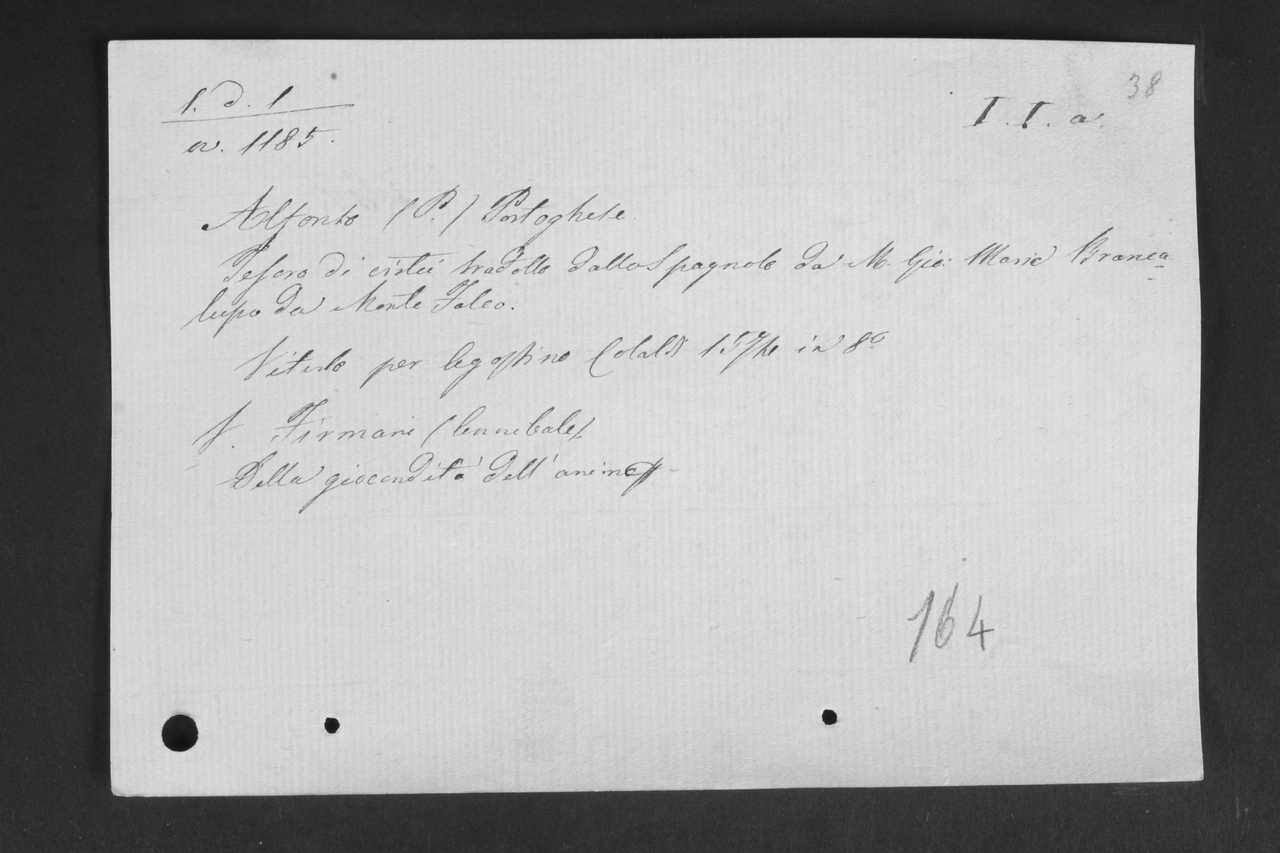 38
1. d. 1
a. 1185.
I. I. a.
Alfonso (P.) Portoghese
Tesoro di virtù tradotto dallo Spagnolo da M. Gio: Maria Branca-
lupo da Monte Falco.
Viterbo per Agostino Colaldi 1574 in 8º
V. Firmani (Annibale)
Della giocondità dell'anima
164